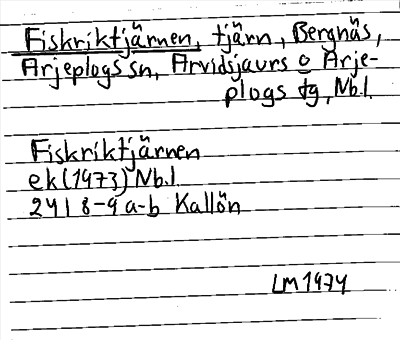 Fiskriktjärnen, tjärn, Bergnäs,
Arjeplogs sn, Arvidsjaurs o Arje-
plogs tg, Nb.l.
Fiskriktjärnen
ek (1973) Nb.l
24I 8-9 a-b Kallön
LM 1974